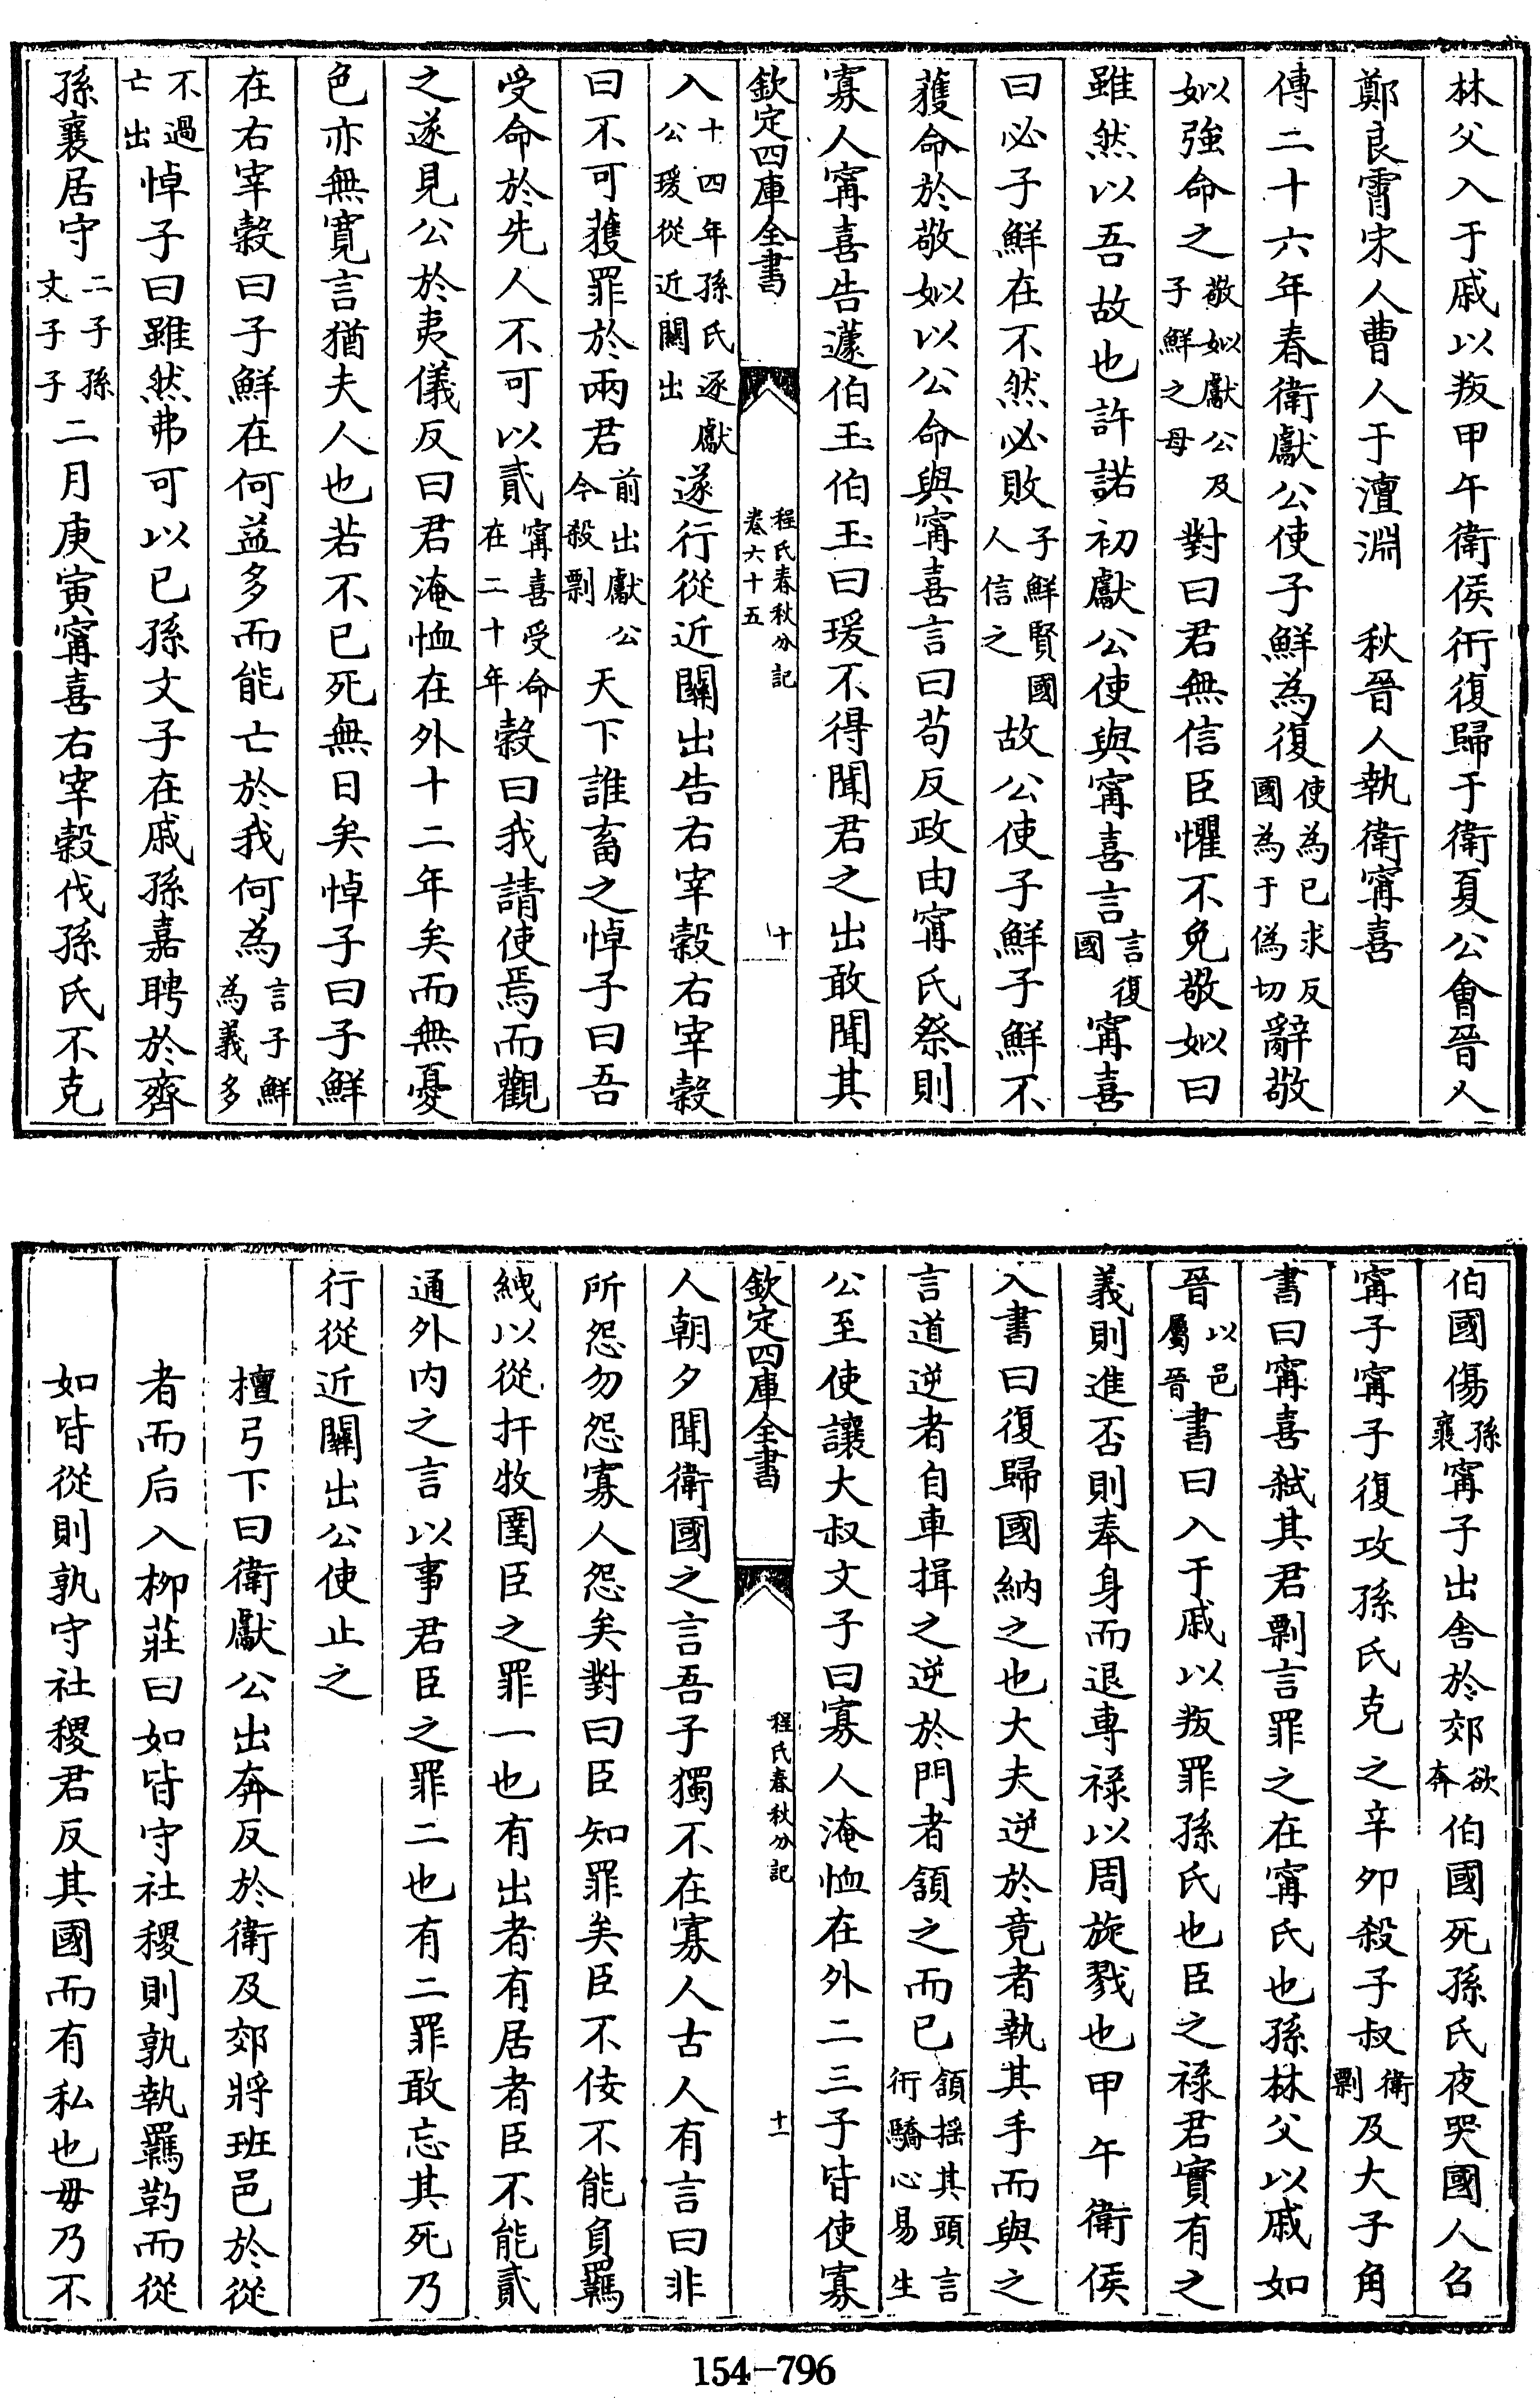 林父入于戚以叛甲午衛侯衎復歸于衛夏公會晉人
鄭良霄宋人曹人于澶淵　秋晉人執衛甯喜
傳二十六年春衛獻公使子鮮為復使為己求反國為于偽切辭敬
姒強命之敬姒獻公及子鮮之母對曰君無信臣懼不免敬姒曰
雖然以吾故也許諾初獻公使與甯喜言言復國甯喜
曰必子鮮在不然必敗子鮮賢國人信之故公使子鮮子鮮不
獲命於敬姒以公命與甯喜言曰苟反政由甯氏祭則
寡人甯喜告蘧伯玉伯玉曰瑗不得聞君之出敢聞其
欽定四庫全書　程氏春秋分記卷六十五　十
入十四年孫氏逐獻公瑗從近關出遂行從近關出告右宰穀右宰穀
曰不可獲罪於兩君前出獻公今殺剽天下誰畜之悼子曰吾
受命於先人不可以貳甯喜受命在二十年穀曰我請使焉而觀
之遂見公於夷儀反曰君淹恤在外十二年矣而無憂
色亦無寬言猶夫人也若不已死無日矣悼子曰子鮮
在右宰穀曰子鮮在何益多而能亡於我何為言子鮮為義多
不過亡出悼子曰雖然弗可以已孫文子在戚孫嘉聘於齊
孫襄居守二子孫文子子二月庚寅甯喜右宰穀伐孫氏不克
伯國傷孫襄甯子出舍於郊欲奔伯國死孫氏夜哭國人召
甯子甯子復攻孫氏克之辛卯殺子叔衛剽及大子角
書曰甯喜弒其君剽言罪之在甯氏也孫林父以戚如
晉以邑屬晉書曰入于戚以叛罪孫氏也臣之祿君實有之
義則進否則奉身而退專祿以周旋戮也甲午衛侯
入書曰復歸國納之也大夫逆於竟者執其手而與之
言道逆者自車揖之逆於門者頷之而已頷搖其頭言衎驕心易生
公至使讓大叔文子曰寡人淹恤在外二三子皆使寡
欽定四庫全書　程氏春秋分記　十一
人朝夕聞衛國之言吾子獨不在寡人古人有言曰非
所怨勿怨寡人怨矣對曰臣知罪矣臣不佞不能負羈
絏以從扞牧圉臣之罪一也有出者有居者臣不能貳
通外內之言以事君臣之罪二也有二罪敢忘其死乃
行從近關出公使止之
檀弓下曰衛獻公出奔反於衛及郊將班邑於從
者而后入柳莊曰如皆守社稷則孰執羈靮而從
如皆從則孰守社稷君反其國而有私也毋乃不
154-796